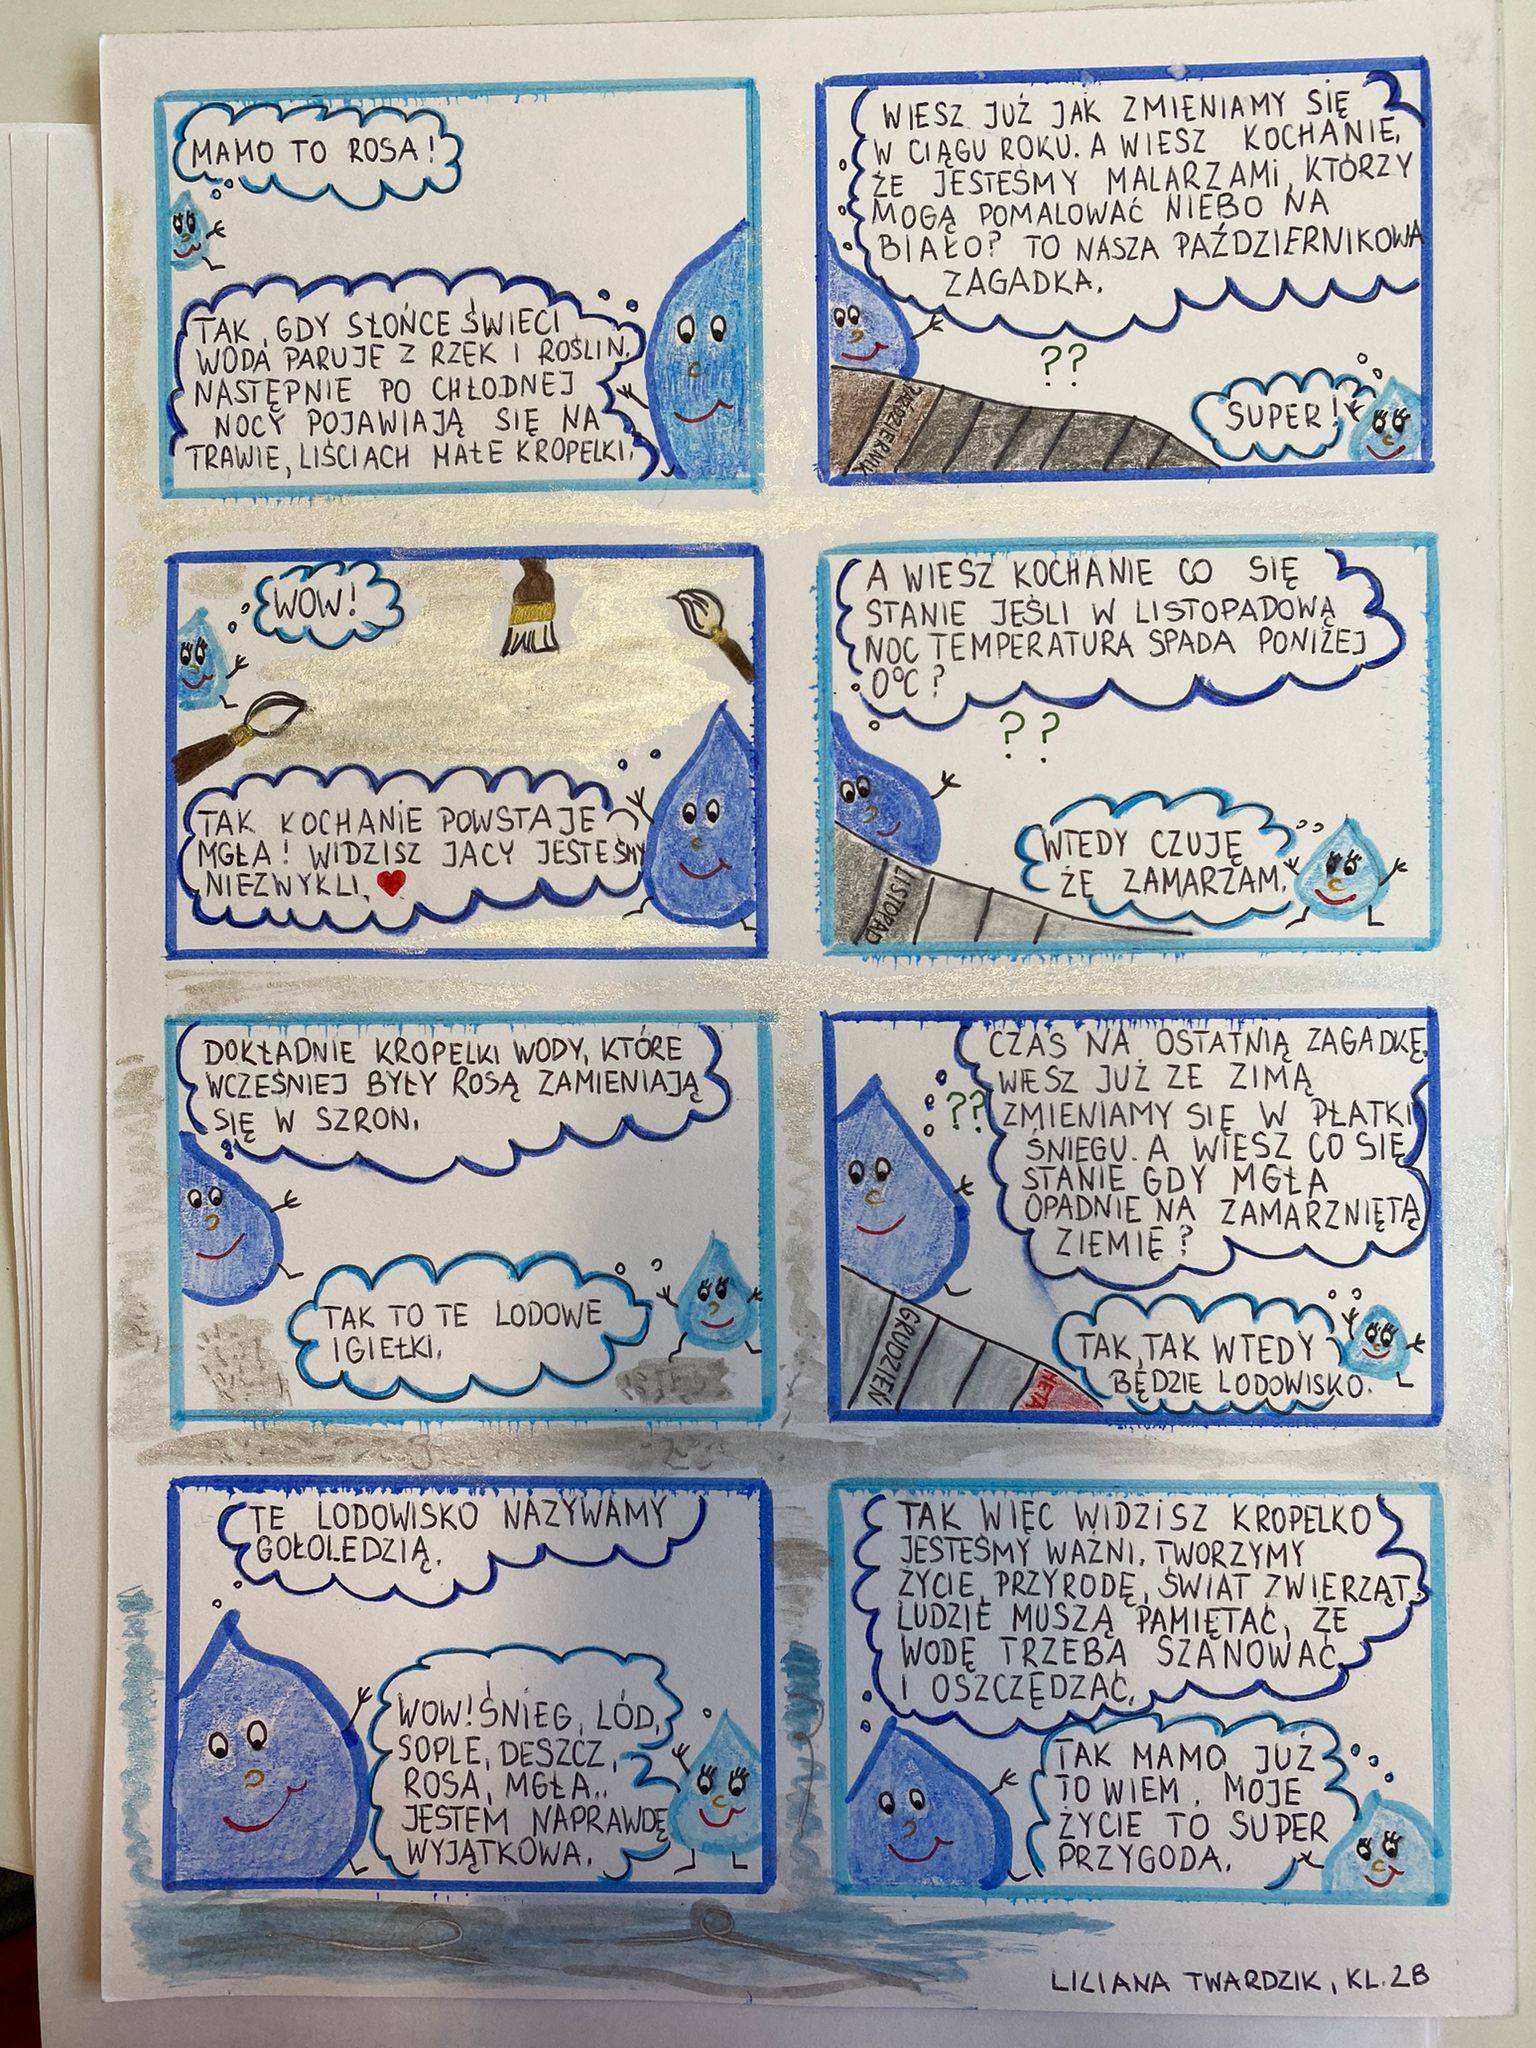 MAMO TO ROSA!
TAK, GDY SŁOŃCE ŚWIECI
WODA PARUJE Z RZEK I ROŚLIN.
NASTĘPNIE PO CHŁODNEJ
NOCY POJAWIAJĄ SIĘ NA
TRAWIE, LIŚCIACH MAŁE KROPELKI.
WIESZ JUŻ JAK ZMIENIAMY SIĘ
W CIĄGU ROKU. A WIESZ KOCHANIE,
ŻE JESTEŚMY MALARZAMI, KTÓRZY
MOGĄ POMALOWAĆ NIEBO NA
BIAŁO? TO NASZA PAŹDZIERNIKOWA
ZAGADKA.
??
SUPER!
PAŹDZIERNIK
WOW!
TAK KOCHANIE POWSTAJE
MGŁA! WIDZISZ JACY JESTEŚMY
NIEZWYKLI. ♥
A WIESZ KOCHANIE CO SIĘ
STANIE JEŚLI W LISTOPADOWĄ
NOC TEMPERATURA SPADA PONIŻEJ
0°C?
? ?
WTEDY CZUJĘ
ŻE ZAMARZAM.
LISTOPAD
DOKŁADNIE KROPELKI WODY, KTÓRE
WCZEŚNIEJ BYŁY ROSĄ ZAMIENIAJĄ
SIĘ W SZRON.
TAK TO TE LODOWE
IGIEŁKI.
CZAS NA OSTATNIĄ ZAGADKĘ.
WIESZ JUŻ ZE ZIMĄ
??
ZMIENIAMY SIĘ W PŁATKI
ŚNIEGU. A WIESZ CO SIĘ
STANIE GDY MGŁA
OPADNIE NA ZAMARZNIĘTĄ
ZIEMIĘ?
GRUDZIEŃ
META
TAK, TAK WTEDY
BĘDZIE LODOWISKO.
TE LODOWISKO NAZYWAMY
GOŁOLEDZIĄ.
WOW! ŚNIEG, LÓD,
SOPLE, DESZCZ,
ROSA, MGŁA..
JESTEM NAPRAWDĘ
WYJĄTKOWA.
TAK WIĘC WIDZISZ KROPELKO
JESTEŚMY WAŻNI. TWORZYMY
ŻYCIE, PRZYRODĘ, ŚWIAT ZWIERZĄT.
LUDZIE MUSZĄ PAMIĘTAĆ, ŻE
WODĘ TRZEBA SZANOWAĆ
I OSZCZĘDZAĆ.
TAK MAMO JUŻ
TO WIEM. MOJE
ŻYCIE TO SUPER
PRZYGODA.
LILIANA TWARDZIK, KL. 2B